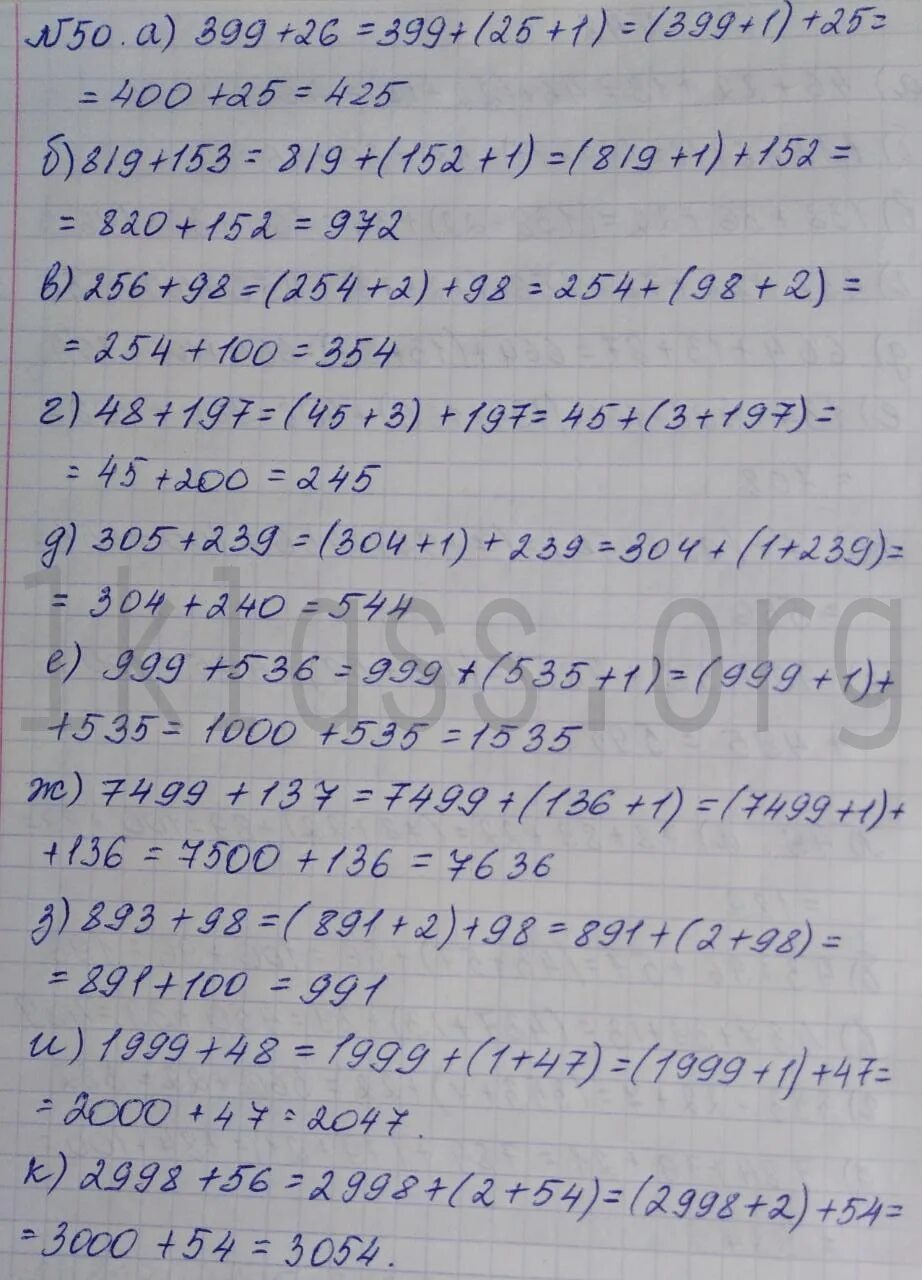 №50. а) 399+26 = 399+(25+1) = (399+1)+25=
= 400+25 = 425
б) 819+153 = 819+(152+1) = (819+1)+152 =
= 820+152 = 972
в) 256+98 = (254+2)+98 = 254+(98+2) =
= 254+100 = 354
г) 48+197 = (45+3)+197 = 45+(3+197) =
= 45+200 = 245
д) 305+239 = (304+1)+239 = 304+(1+239) =
= 304+240 = 544
1klass.org
е) 999+536 = 999+(535+1) = (999+1)+
+535 = 1000+535 = 1535
ж) 7499+137 = 7499+(136+1) = (7499+1)+
+136 = 7500+136 = 7636
з) 893+98 = (891+2)+98 = 891+(2+98) =
= 891+100 = 991
и) 1999+48 = 1999+(1+47) = (1999+1)+47=
= 2000+47 = 2047.
к) 2998+56 = 2998+(2+54) = (2998+2)+54=
= 3000+54 = 3054.